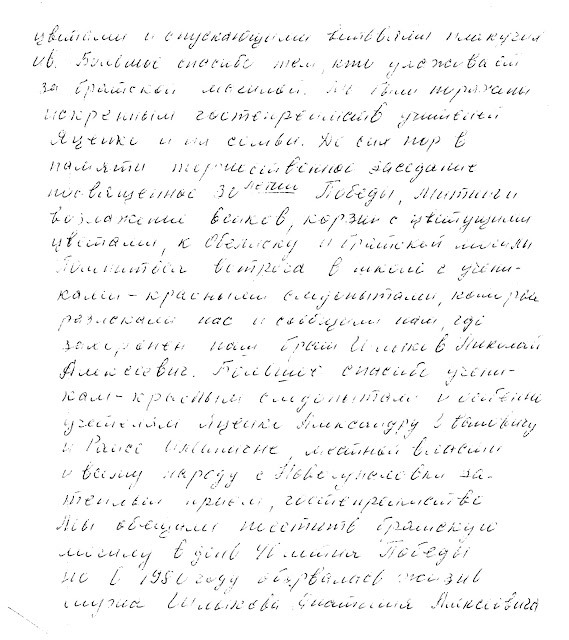 цветами и опускающими ветвями плакучих
ив. Большое спасибо тем, кто ухаживает
за братской могилой. Мы были поражены
искренним гостеприимством учителей
Яценко и их семьи. До сих пор в
памяти торжественное заседание
посвященное 30 летию Победы, митинги
возложение венков, корзин с цветущими
цветами, к Обелиску и братской могилы
Помнится встреча в школе с учени-
ками - красными следопытами, которые
разыскали нас и сообщили нам, где
захоронен наш брат Шлыков Николай
Алексеевич. Большое спасибо учени-
кам - красным следопытам и особенно
учителям Яценко Александру Ивановичу
и Раисе местной власти
и всему народу с за-
теплый прием, гостеприимство
Мы обещали посетить братскую
могилу в день 40 летия Победы
но в 1980 году оборвалась жизнь
мужа Шлыкова Анатолия Алексеевича